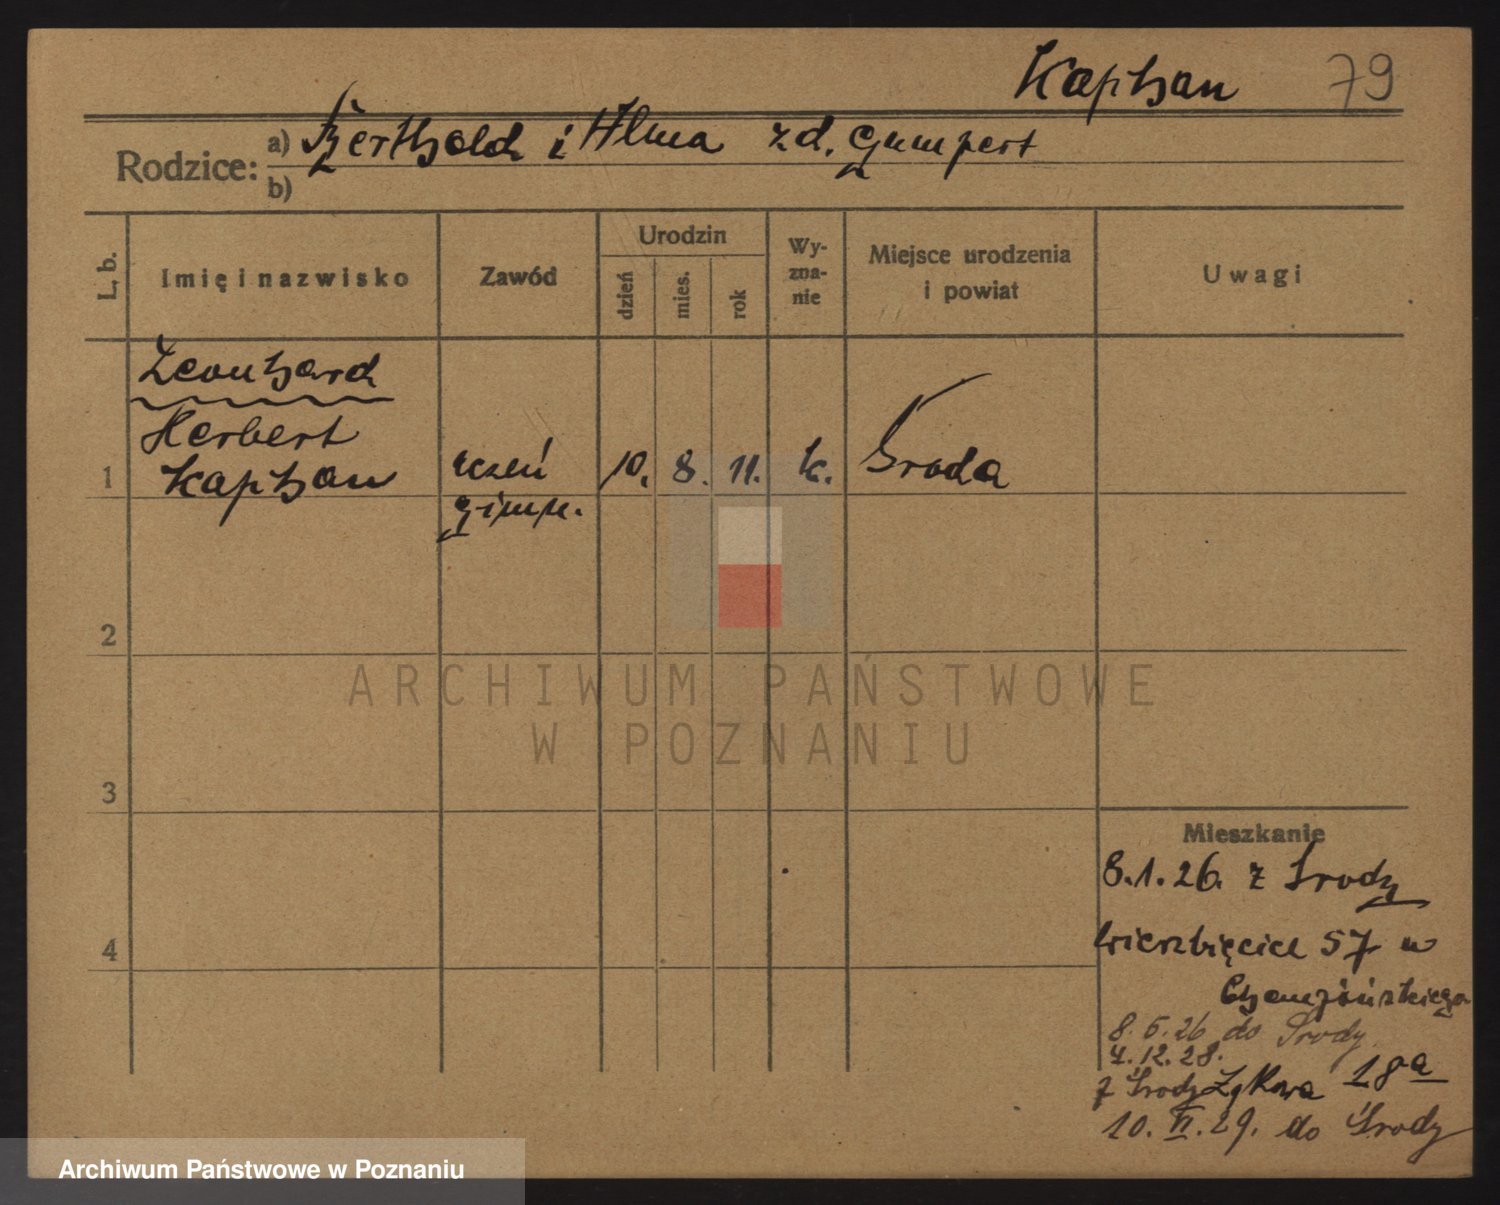 Kaphan 79
Rodzice: a) Berthold i Alma zd. Gumpert
b)
L. b. Imię i nazwisko Zawód Urodzin dzień mies. rok Wyznanie Miejsce urodzenia i powiat Uwagi
Leonhard
Herbert
1 Kaphan uczeń 10. 8. 11. k. Środa
gimn.
2
ARCHIWUM PAŃSTWOWE
W POZNANIU
3
Mieszkanie
8.1.26. z Środy
4 Wierzbięcice 57 u
8.5.26 do Środy
4.12.28.
z Środy Łąkowa 18a
10. VI. 29. do Środy
Archiwum Państwowe w Poznaniu